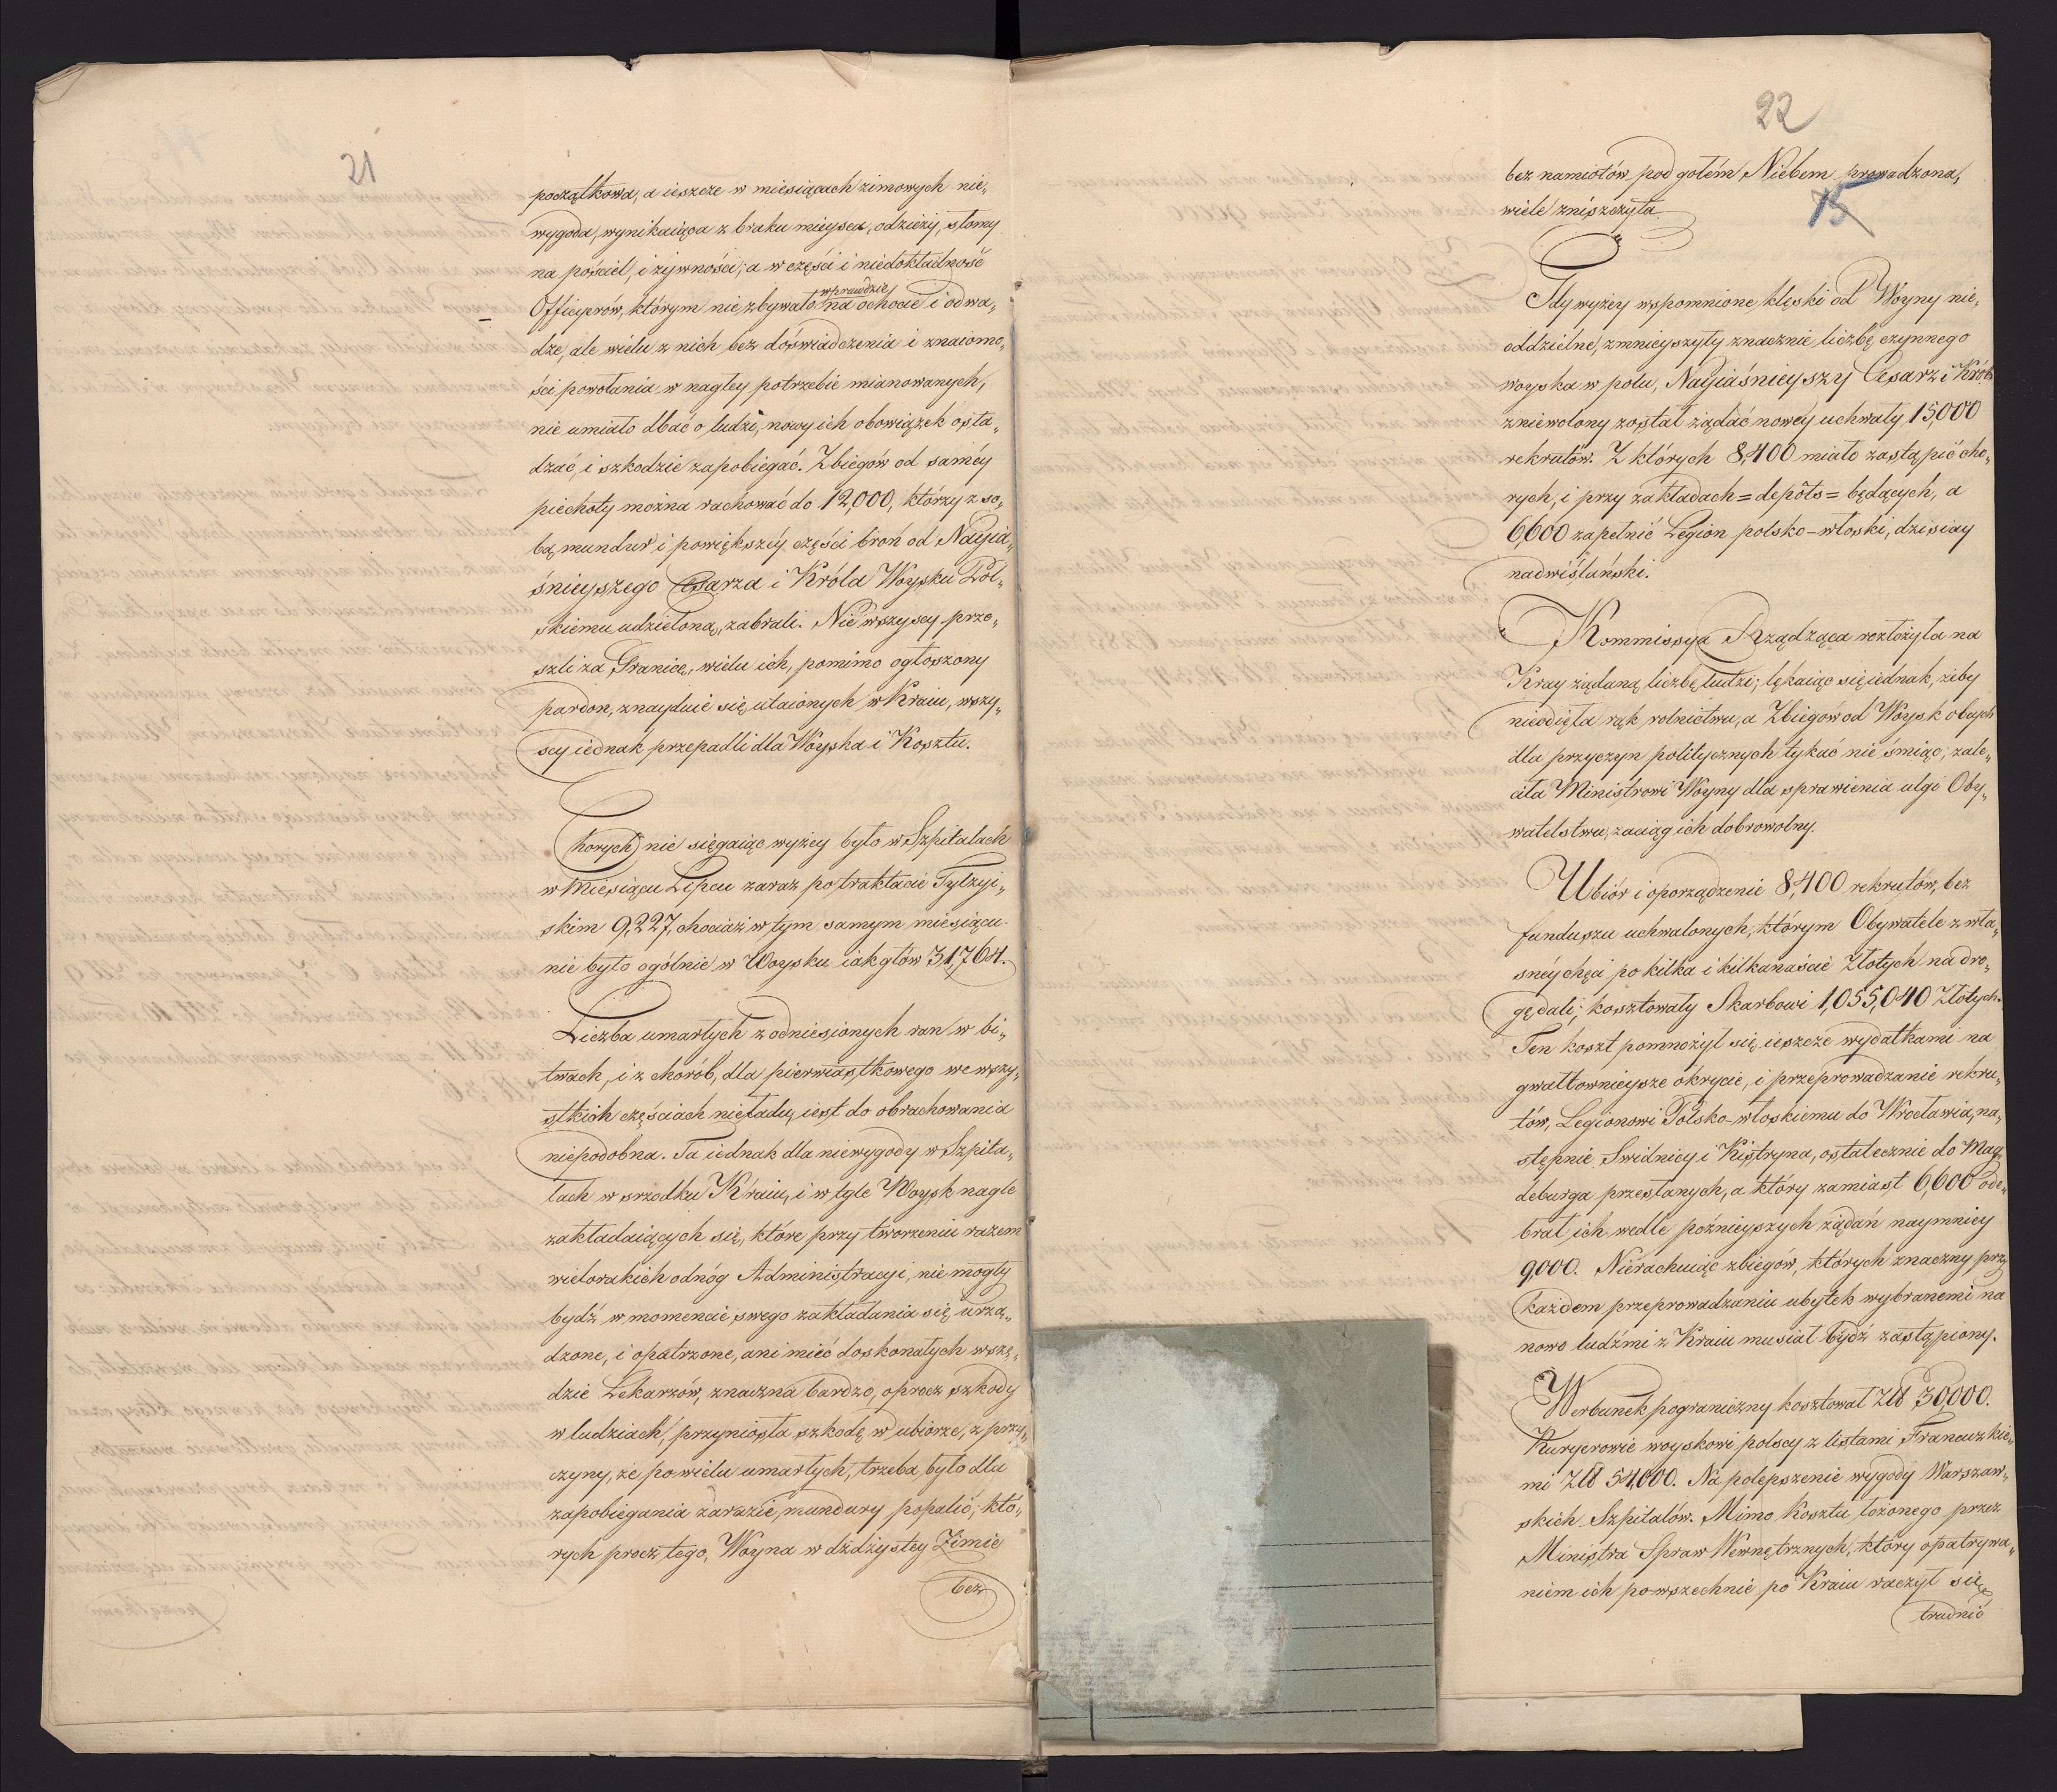 21
początkowa, a ieszcze w miesiącach zimowych nie„
wygoda, wynikaiąca z braku mieysca, odzieży, słomy
na pościel, i żywności; a w części i niedokładność
wprawdzie
Officyerów, którym nie zbywało na ochocie i odwa„
dze, ale wielu z nich bez doświadczenia i znaiomo„
ści powołania w nagłey potrzebie mianowanych,
nie umiało dbać o ludzi, nowy ich obowiązek osła„
dzać, i szkodzie zapobiegać. Zbiegów od saméy
piechoty można rachować do 12,000, którzy z so„
bą mundur i powiększéy części broń od Nayia„
śnieyszego Cesarza i Króla Woysku Pol„
skiemu udzieloną, zabrali. Nie wszyscy prze„
szli za Granicę, wielu ich, pomimo ogłoszony
pardon, znayduie się utaionych w Kraiu, wszy„
scy iednak przepadli dla Woyska i Kosztu.
Chorych nie sięgaiąc wyżey było w Szpitalach
w Miesiącu Lipcu zaraz po traktacie Tylzyi„
skim 9,227, chociaż w tym samym miesiącu
nie było ogólnie w Woysku iak głów 31,764.
Liczba umarłych z odniesionych ran w bi„
twach, i z chorób, dla pierwiastkowego we wszy„
stkich częściach nieładu, iest do obrachowania
niepodobna. Ta iednak dla niewygody w Szpita„
lach w srzodku Kraiu, i w tyle Woysk nagle
zakładaiących się, które przy tworzeniu razem
wielorakich odnóg Administracyi, nie mogły
bydź w momencie swego zakładania się urzą„
dzone, i opatrzone, ani mieć doskonałych wszę„
dzie Lekarzów, znaczna bardzo, oprocz szkody
w ludziach, przyniosła szkodę w ubiorze, z przy„
czyny, że po wielu umarłych, trzeba było dla
zapobiegania zarazie, mundury popalić; któ„
rych procz tego, Woyna w dżdżystey Zimie
bez
22
bez namiotów pod gołém Niebem prowadzona,
wiele zniszczyła.
15
Gdy wyżey wspomnione klęski od Woyny nie„
oddzielne, zmnieyszyły znacznie liczbę czynnego
woyska w polu, Nayiaśnieyszy Cesarz i Król
zniewolony został żądać nowey uchwały 15,000
rekrutów. Z których 8,400 miało zastąpić cho„
rych, i przy zakładach = depôts = będących, a
6,600 zapełnić Legion polsko-włoski, dzisiay
nadwiślański.
Kommissya Rządząca rozłożyła na
Kray żądaną liczbę ludzi; lękaiąc się iednak, żeby
nieodięła rąk rolnictwu, a Zbiegów od Woysk obcych
dla przyczyn politycznych tykać nie śmiąc, zale„
ciła Ministrowi Woyny dla sprawienia ulgi Oby„
watelstwu, zaciąg ich dobrowolny.
Ubiór i oporządzenie 8,400 rekrutów, bez
funduszu uchwalonych, którym Obywatele z wła„
snéy chęci po kilka i kilkanaście Złotych na dro„
gę dali; kosztowały Skarbowi 1,055,040 Złotych.
Ten koszt pomnożył się ieszcze wydatkami na
gwałtownieysze okrycie, i przeprowadzanie rekru„
tów, Legionowi Polsko-włoskiemu do Wrocławia, na„
stępnie Swidnicy i Kistryna, ostatecznie do Mag„
deburga przesłanych, a który zamiast 6,600 ode„
brał ich wedle poźnieyszych żądań naymniey
9,000. Nierachuiąc zbiegów, których znaczny przy
każdem przeprowadzaniu ubytek wybranemi na
nowo ludźmi z Kraiu musiał bydź zastąpiony.
Werbunek pograniczny kosztował Złł 30,000.
Kuryerowie woyskowi polscy z listami Francuzkie„
mi Złł 54,000. Na polepszenie wygody Warszaw„
skich Szpitalów. Mimo Kosztu łożonego przez
Ministra Spraw Wewnętrznych, który opatrywa„
niem ich powszechnie po Kraiu raczył się
trudnić